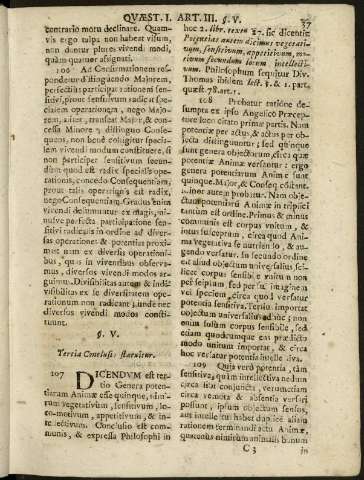 QVÆST. I. ART. III. §. V.
37
contrario motu declinare. Quam-
vis ergo talpa non habeat visum,
non dantur plures vivendi modi,
quàm quatuor assignati.
106 Ad Confirmationem res-
pondetur distinguendo Majorem,
perfectius participat rationem sensi-
tivi, prout sensitivum radicat spe-
cialem operationem, nego Majo-
rem, aliter, transeat Major, & con-
cessa Minore distinguo Conse-
quens, non benè colligitur specia-
lem vivendi modum constituere, si
non participet sensitivum secun-
dùm quod est radix specialis ope-
rationis, concedo Consequentiam,
prout talis operationis est radix,
nego Consequentiam. Gradus enim
vivendi desumuntur ex magis, mi-
nusve perfecta participatione sensi-
tivi radicalis in ordine ad diver-
sas operationes & potentias proxi-
mas, non ex diversis operationi-
bus, quas in viventibus observa-
mus, diversos vivendi modos ar-
guimus. Divisibilitas autem & indi-
visibilitas ex se diversitatem ope-
rationum non radicant, unde nec
diversos vivendi modos consti-
tuunt.
§. V.
Tertia Conclusio statuitur.
107 DICENDUM est ter-
tio Genera poten-
tiarum Animæ esse quinque, nimi-
rum vegetativum, sensitivum, lo-
comotivum, appetitivum, & in-
tellectivum. Conclusio est com-
munis, & expressa Philosophi in
hoc 2. libr. textu 27. sic dicentis:
Potentias autem dicimus vegetati-
vum, sensitivum, appetitivum, mo-
tivum secundum locum intellecti-
vum. Philosophum sequitur Div.
Thomas ibidem lect. 5. & 1. part.
quæst. 78. art. 1.
108 Probatur ratione de-
sumpta ex ipso Angelico Præcep-
tore loco citato primæ partis. Nam
potentiæ per actus, & actus per ob-
jecta distinguuntur; sed quinque
sunt genera objectorum, circa quæ
potentiæ Animæ versantur: ergo
genera potentiarum Animæ sunt
quinque. Major, & Conseq. constant.
Minor autem probatur. Nam objec-
tum potentiarum Animæ in triplici
tantùm est ordine. Primus & minus
communis est corpus unitum, &
intus susceptum, circa quod Ani-
ma vegetativa se nutriendo, & au-
gendo versatur. In secundo ordine
est aliud objectum universalius sci-
licet corpus sensibile unitum non
per seipsum sed per sui imaginem
vel speciem, circa quod versatur
potentia sensitiva. Tertio, potentiæ
objectum universalius adhuc; non
enim solum corpus sensibile, sed
etiam quodcumque ens prædicto
modo unitum importat, & circa
hoc versatur potentia intellectiva.
109 Quia verò potentia, tàm
sensitiva, quàm intellectiva nedum
circa sibi conjuncta, verùm etiam
circa corpora extrinseca versari
possunt, ipsum objectum sensus,
aut intellectus habet duplicem aliam
rationem terminandi actum Animæ,
quatenus nimirùm animalis bonum
C 3
in